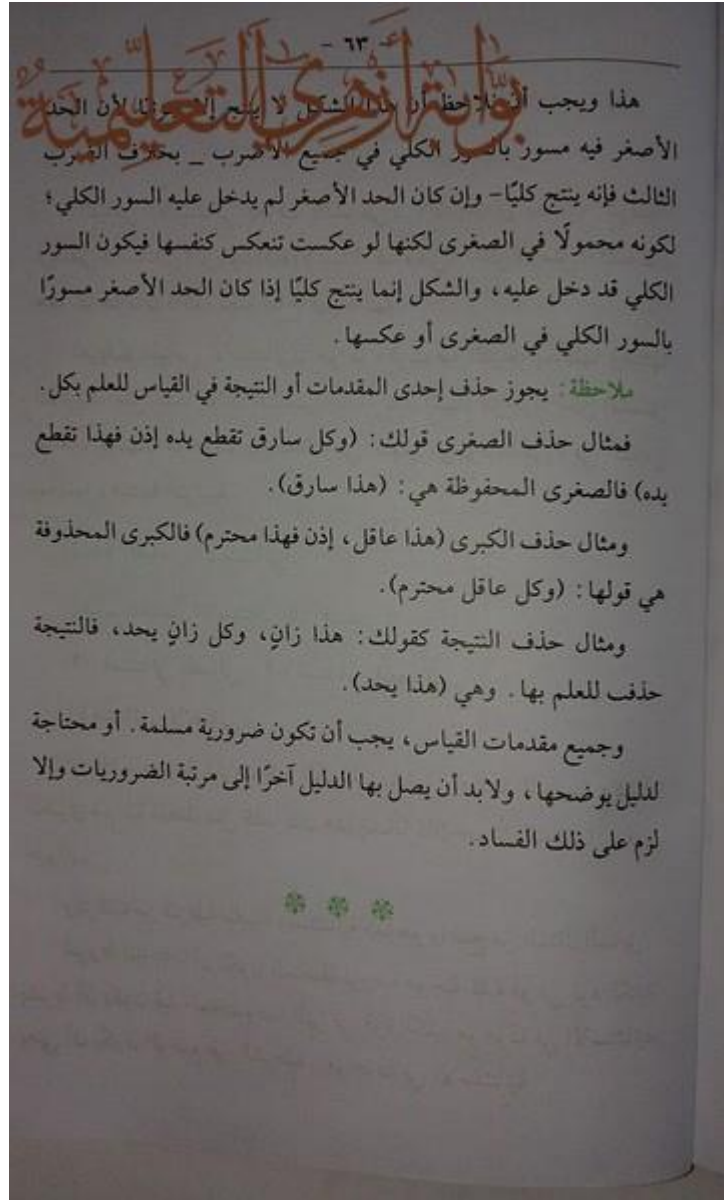 - ٦٣ -
بوابة أزهري التعليمية
هذا ويجب أن يلاحظ أن هذا الشكل لا ينتج إلا جزئيًا لأن الحد
الأصغر فيه مسور بالسور الكلي في جميع الأضرب _ بخلاف الضرب
الثالث فإنه ينتج كليًا– وإن كان الحد الأصغر لم يدخل عليه السور الكلي؛
لكونه محمولًا في الصغرى لكنها لو عكست تنعكس كنفسها فيكون السور
الكلي قد دخل عليه، والشكل إنما ينتج كليًا إذا كان الحد الأصغر مسورًا
بالسور الكلي في الصغرى أو عكسها.
ملاحظة: يجوز حذف إحدى المقدمات أو النتيجة في القياس للعلم بكل.
فمثال حذف الصغرى قولك: (وكل سارق تقطع يده إذن فهذا تقطع
يده) فالصغرى المحفوظة هي: (هذا سارق).
ومثال حذف الكبرى (هذا عاقل، إذن فهذا محترم) فالكبرى المحذوفة
هي قولها: (وكل عاقل محترم).
ومثال حذف النتيجة كقولك: هذا زانٍ، وكل زانٍ يحد، فالنتيجة
حذفت للعلم بها. وهي (هذا يحد).
وجميع مقدمات القياس، يجب أن تكون ضرورية مسلمة. أو محتاجة
لدليل يوضحها، ولابد أن يصل بها الدليل آخرًا إلى مرتبة الضروريات وإلا
لزم على ذلك الفساد.